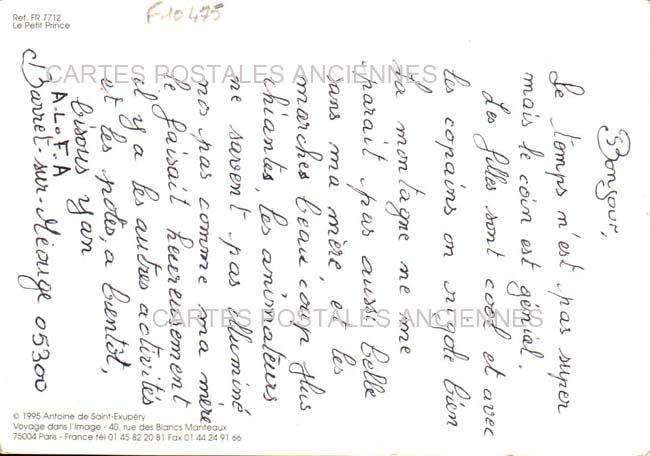 Ref. FR 7712
Le Petit Prince
F10 475
CARTES POSTALES ANCIENNES
Bonjour,
Le temps n'est pas super
mais le coin est génial.
Les filles sont cool et avec
les copains on rigole bien
La montagne ne me
parait pas aussi belle
sans ma mère, et les
marches beaucoup plus
chiantes, les animateurs
ne savent pas illuminé
nos pas comme ma mère
le faisait heureusement
il y a les autres activités
et les potes, a bientôt,
bisous Yan
A.L.F.A
Barret-sur-Méouge 05300
CARTES POSTALES ANCIENNES
© 1995 Antoine de Saint-Exupéry
Voyage dans l'Image - 40, rue des Blancs Manteaux
75004 Paris - France tél 01 45 82 20 81 Fax 01 44 24 91 66